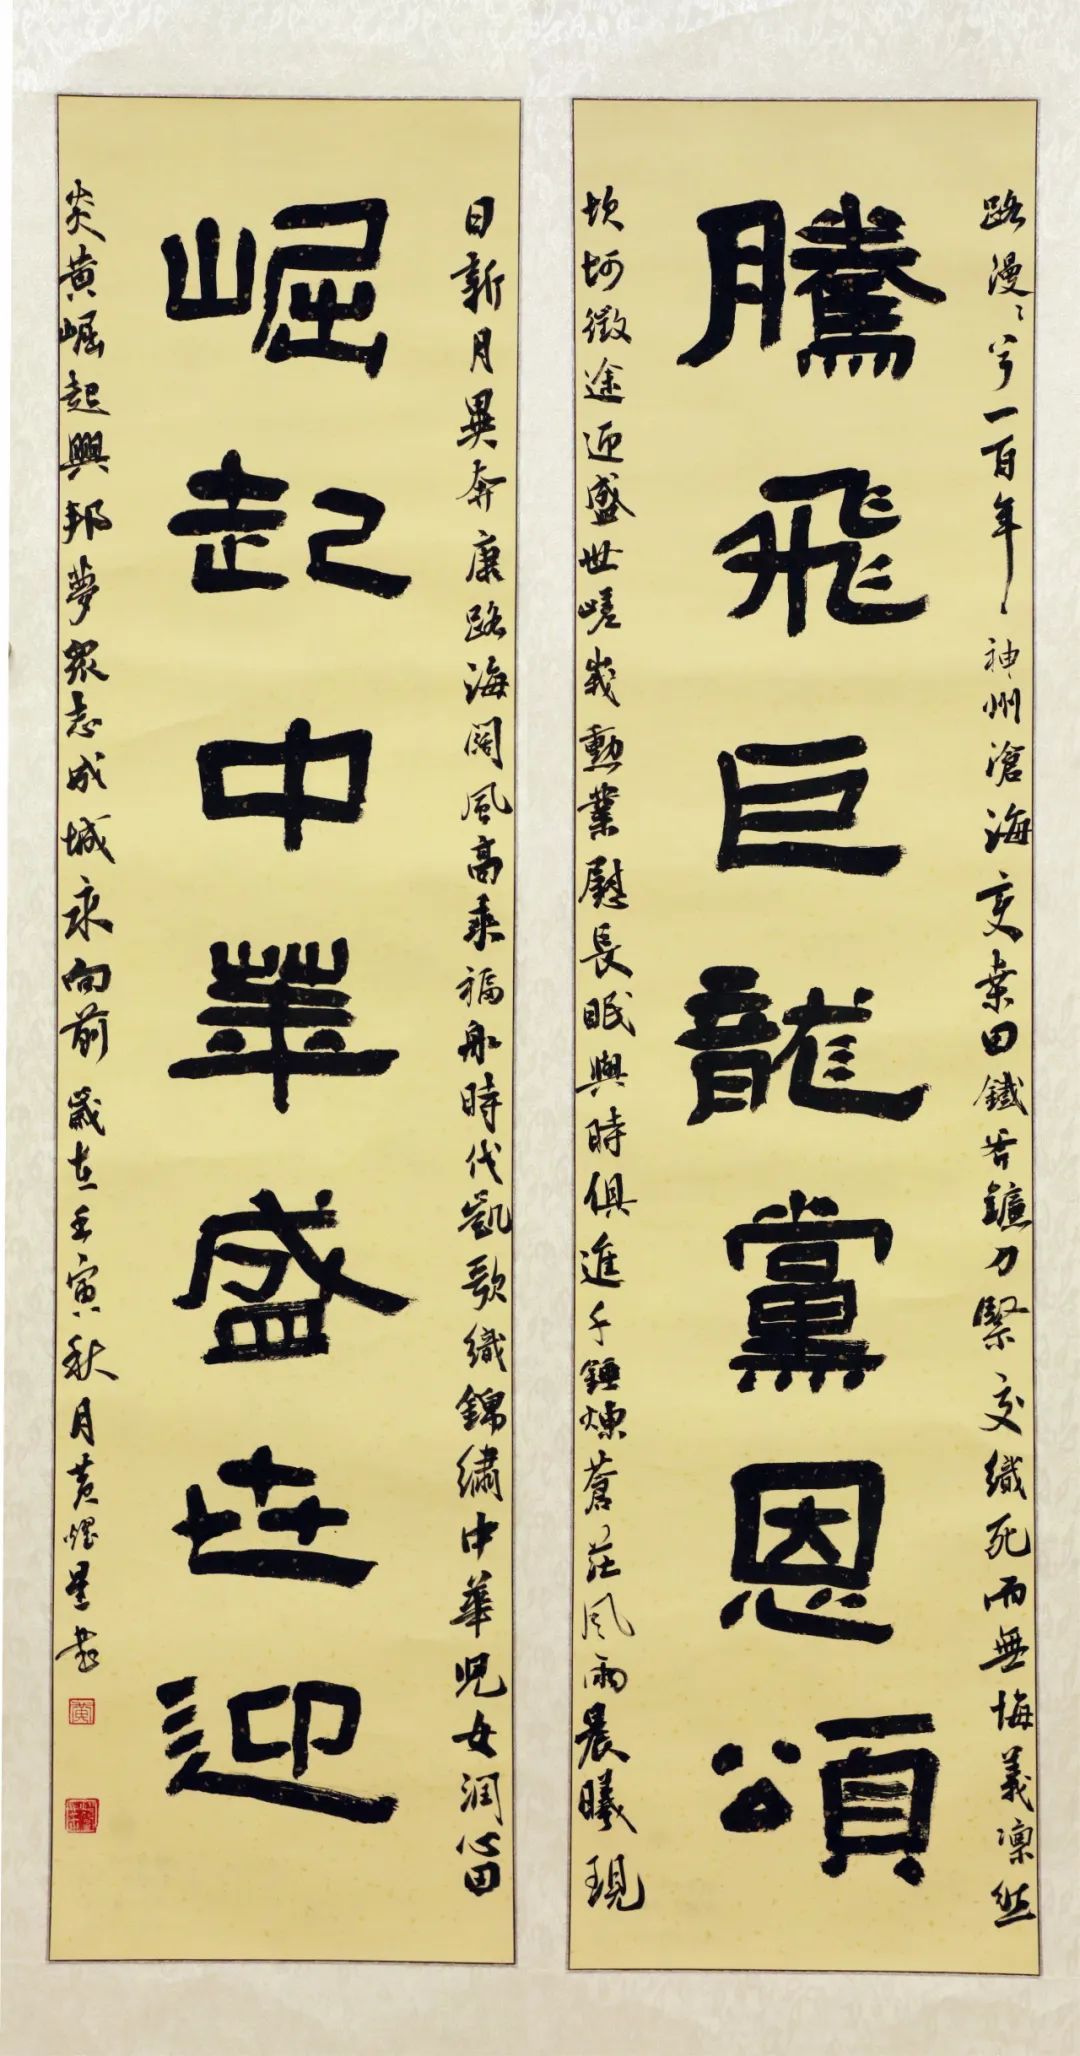 路漫漫兮一百年、神州滄海变桒田鐵斧鐮刀緊交織死而無悔義凜然
騰飛巨龍黨恩頌
坎坷徵途迎盛世嵯峩勳業慰長眠與時俱進千錘煉蒼茫風雨晨曦現
日新月異奔康路海闊風高乘福船時代凱歌織錦繡中華兒女潤心田
崛起中華盛世迎
炎黄崛起興邦夢眾志成城永向前 歲在壬寅秋月黄星書
黄